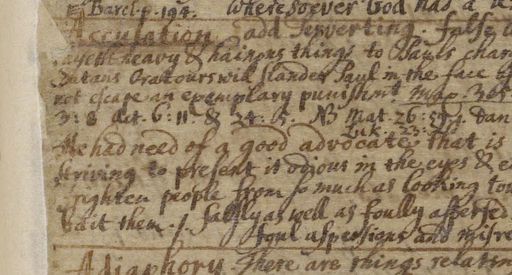 Barcl. p. 194. Wheresoever God had a
Accusation. add Perverting. false
layeth heavy & hainous things to Pauls char
Satans Oratours wil slander Paul in the face of
not escape an exemplary punishmt.
3: 8 Act. 6: 11 & 24: 5. NB Mat. 26: 59. Dan
Luk. 23:
He had need of a good advocate, that is
striving to present it odious in the eyes &
frighten people from so much as looking tow
bait them. falsly as well as foully aspersed
foul aspersions and misre
Adiaphory. There are things relatin